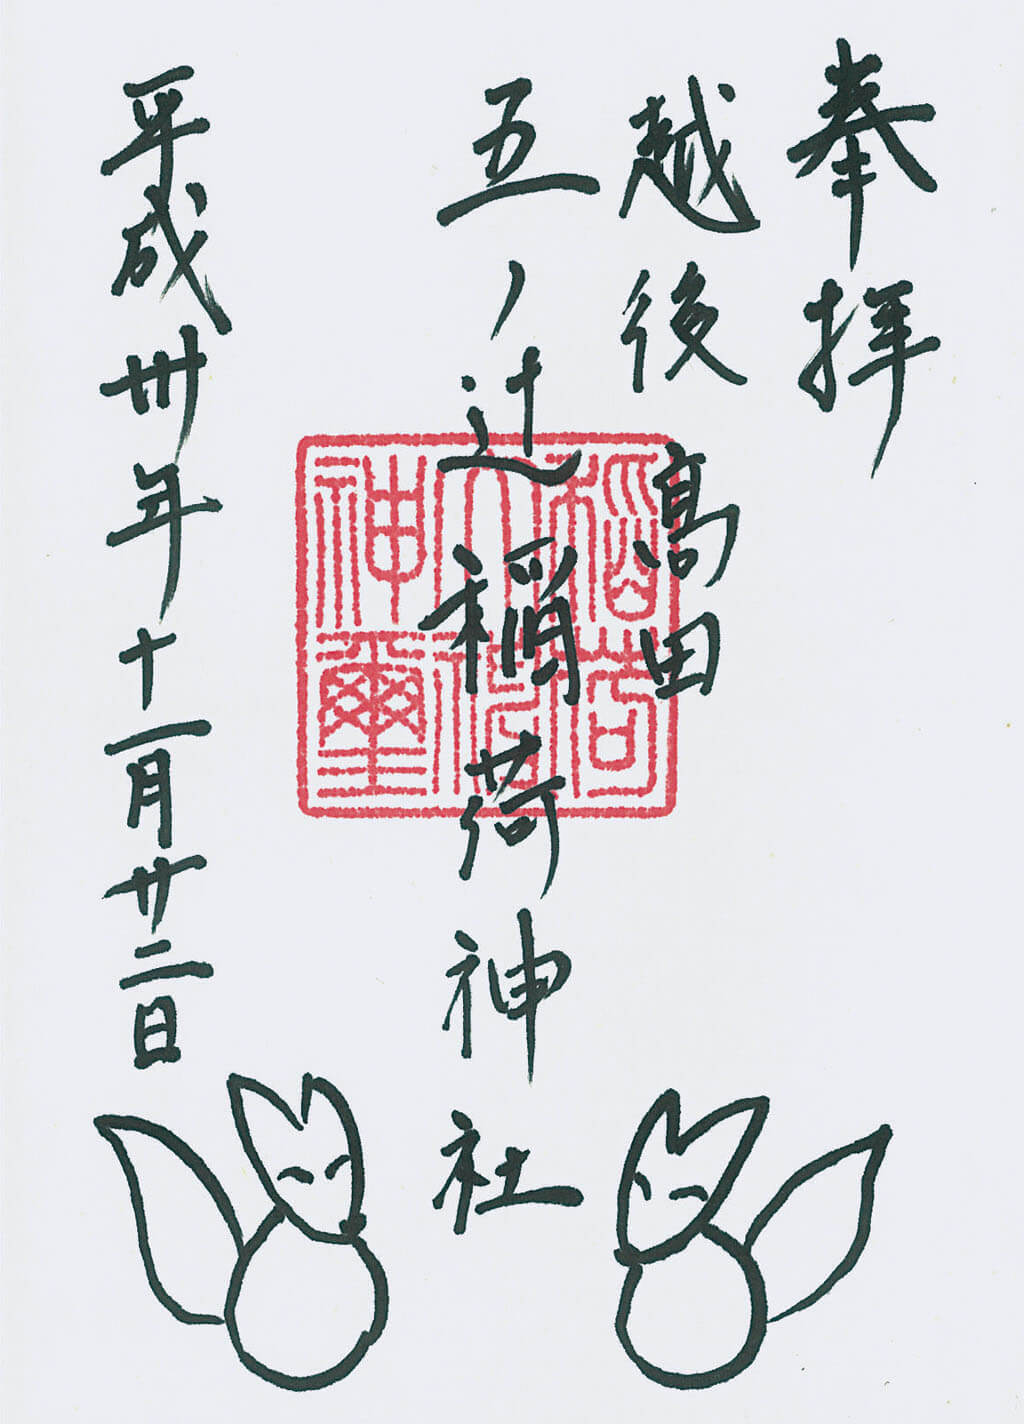 奉拝
越後
高田
五ノ辻稲荷神社
平成卅年十一月廿二日